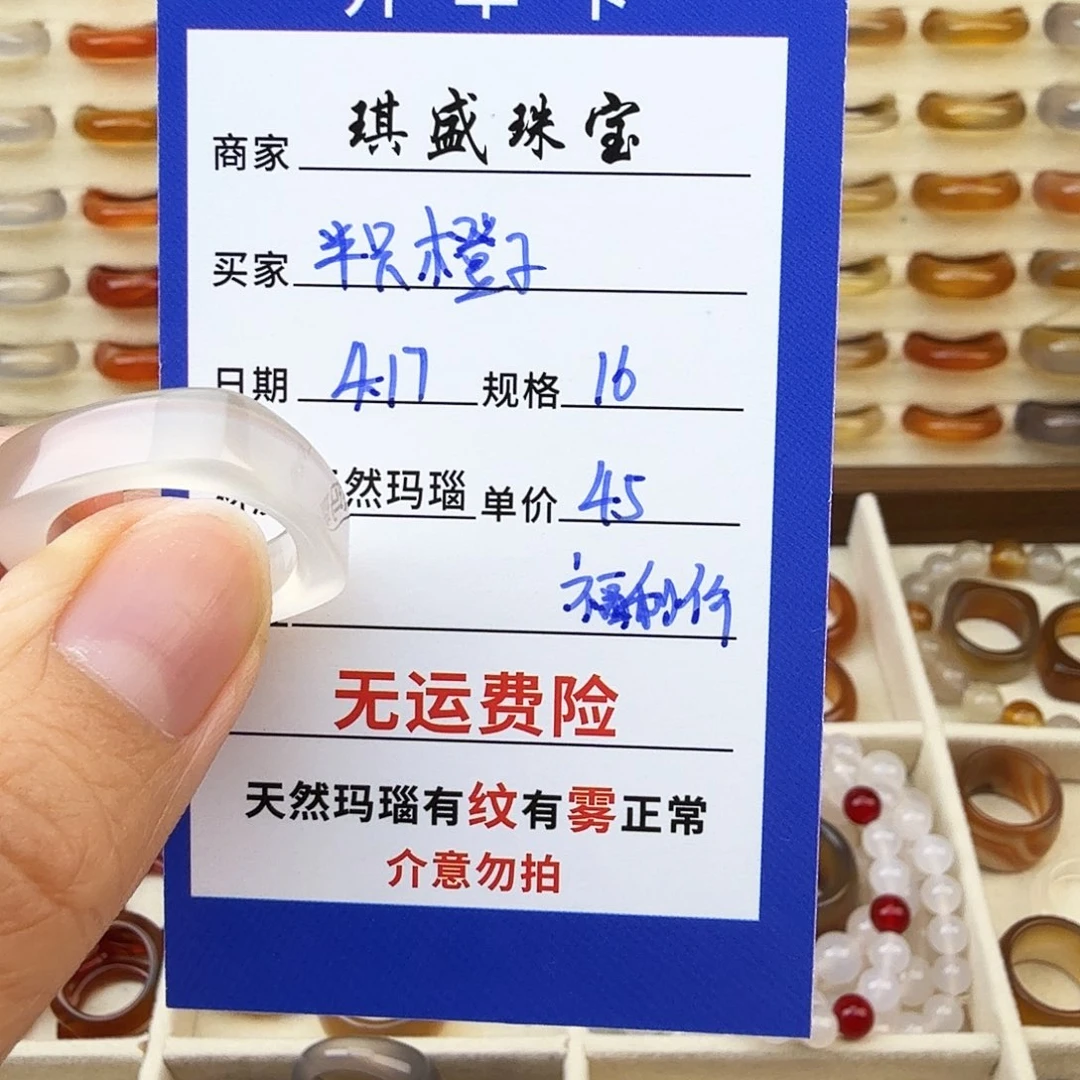 商家 琪盛珠宝
买家 半只橙子
日期 4.17 规格 16
然玛瑙 单价 45
福利价
无运费险
天然玛瑙有纹有雾正常
介意勿拍